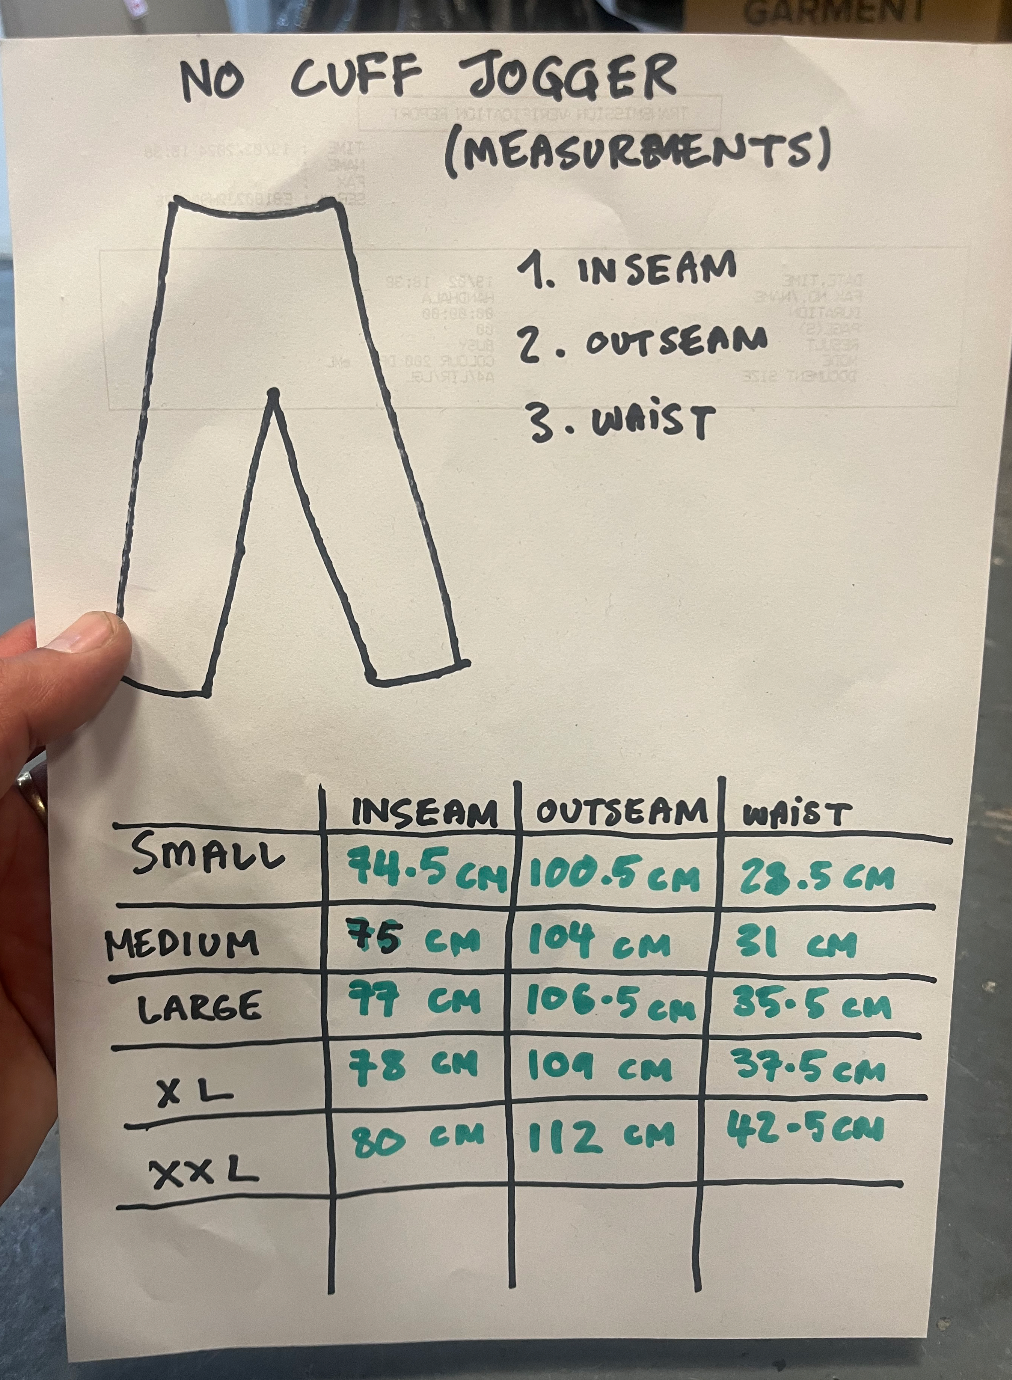 GARMENT
NO CUFF JOGGER
(MEASURMENTS)
1. INSEAM
2. OUTSEAM
3. WAIST
INSEAM OUTSEAM WAIST
SMALL 74.5 CM 100.5 CM 28.5 CM
MEDIUM 75 CM 104 CM 31 CM
LARGE 77 CM 106.5 CM 35.5 CM
XL 78 CM 109 CM 37.5 CM
XXL 80 CM 112 CM 42.5 CM